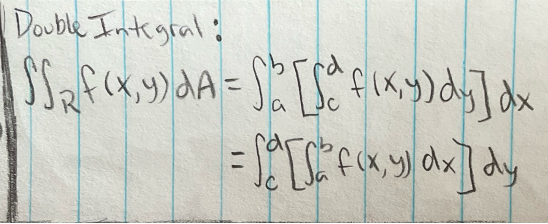 Double Integral:
∬_R f(x,y) dA = ∫_a^b [∫_c^d f(x,y) dy] dx
= ∫_c^d [∫_a^b f(x,y) dx] dy